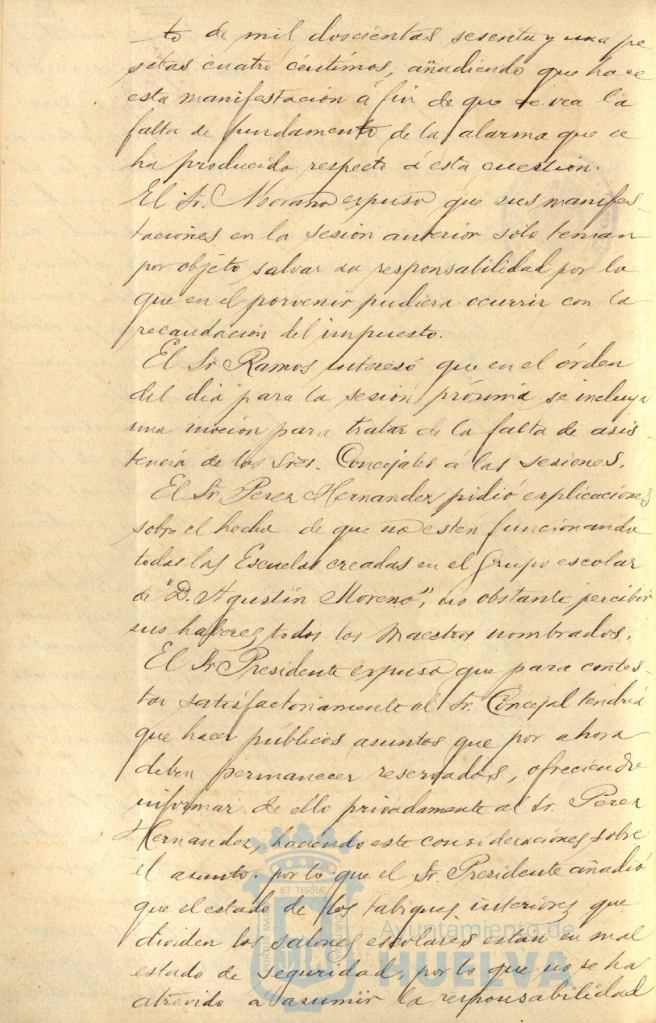 to de mil doscientas sesenta y una pe
setas cuatro céntimos, añadiendo que hace
esta manifestación á fin de que se vea la
falta de fundamento de la alarma que se
ha producido respecto á esta cuestión.
El Sr. Morano expuso que sus manifes-
taciones en la sesión anterior solo tenian
por objeto, salvar su responsabilidad por lo
que en el porvenir pudiera ocurrir con la
recaudación del impuesto.
El Sr Ramos interesó que en el órden
del dia para la sesión próxima, se incluya
una moción para tratar de la falta de asis-
tencia de los Sres. Concejales á las sesiones.
El Sr Perez Hernandez pidió explicaciones
sobre el hecho de que no esten funcionando
todas las Escuelas creadas en el Grupo escolar
de "D. Agustín Moreno", no obstante percibir
sus haberes todos los Maestros nombrados.
El Sr Presidente expuso que para contes-
tar satisfactoriamente al Sr. Concejal tendria
que hacer públicos asuntos que por ahora
deben permanecer reservados, ofreciendo
informar de ello privadamente al Sr. Perez
Hernandez, haciendo este consideraciones sobre
el asunto. por lo que el Sr. Presidente añadió
que el estado de los tabiques interiores que
dividen los salones escolares estan en mal
estado de seguridad, por lo que no se ha
atrevido a asumir la responsabilidad
ET TERRÆ
Ayuntamiento de
HUELVA